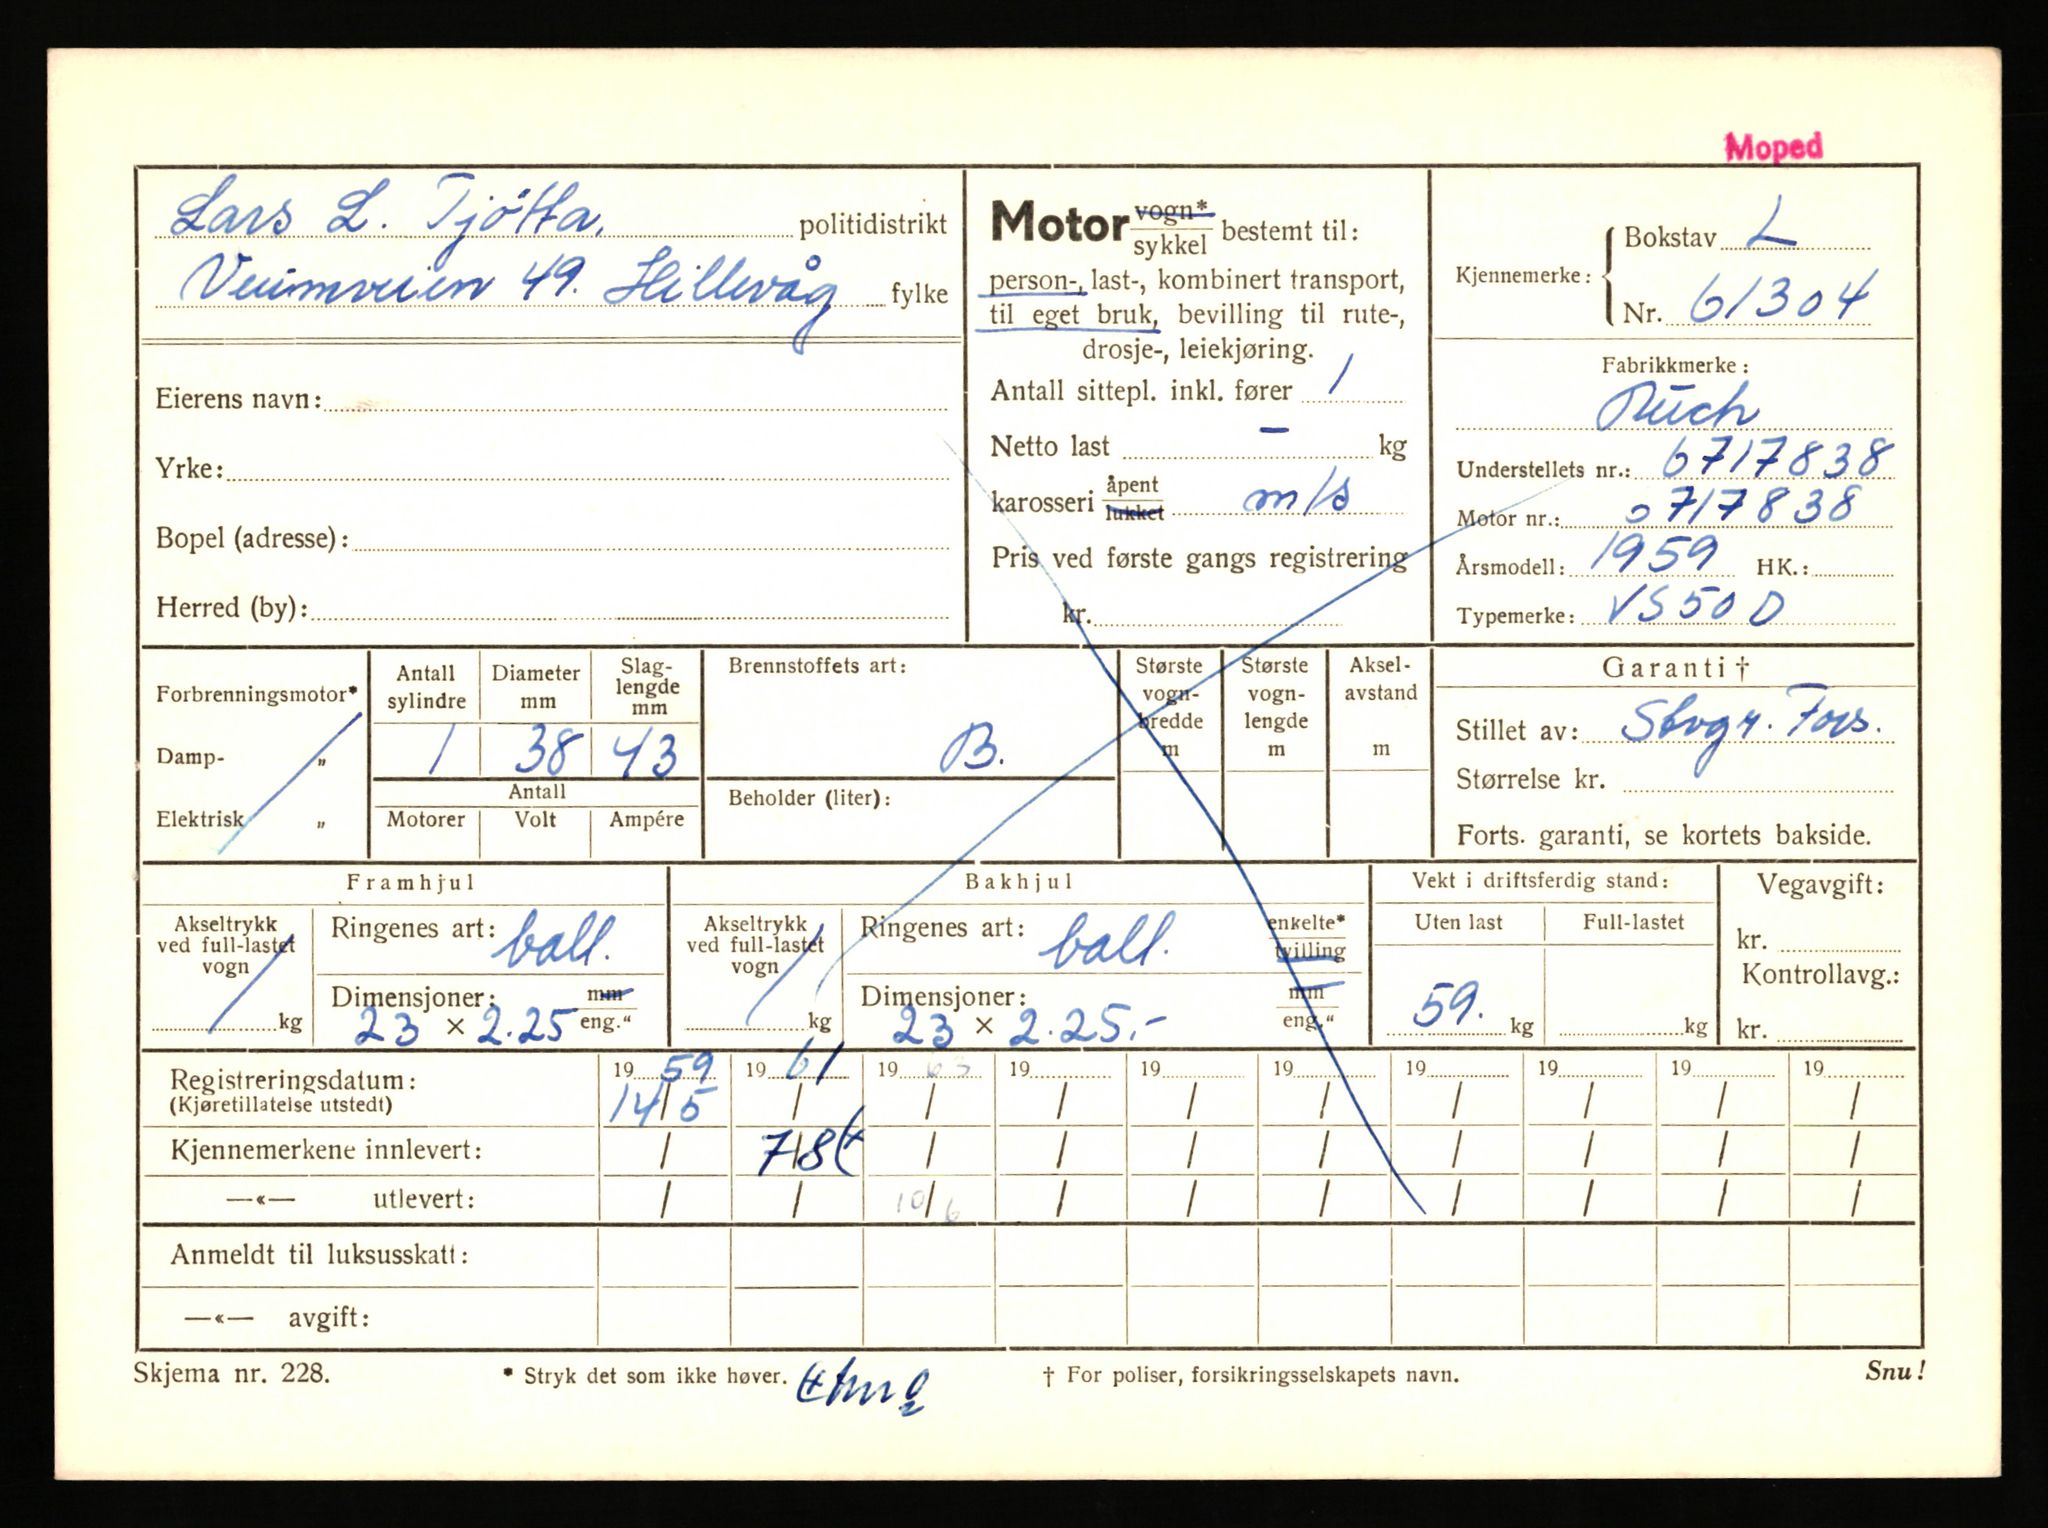 Moped
Lars L. Tjøtta, politidistrikt
49. Hillevåg fylke
Eierens navn:
Yrke:
Bopel (adresse):
Herred (by):
Motor vogn* / sykkel bestemt til:
person-, last-, kombinert transport,
til eget bruk, bevilling til rute-,
drosje-, leiekjøring.
Antall sittepl. inkl. fører 1
Netto last – kg
karosseri åpent / lukket m/s
Pris ved første gangs registrering
kr.
Kjennemerke: Bokstav L
Nr. 61304
Fabrikkmerke:
Puch
Understellets nr.: 6717838
Motor nr.: 0717838
Årsmodell: 1959 HK.:
Typemerke: VS 50 D
Forbrenningsmotor*
Damp- „
Elektrisk „
Antall sylindre Diameter mm Slag-lengde mm
1 38 43
Antall
Motorer Volt Ampére
Brennstoffets art:
B.
Beholder (liter):
Største vogn-bredde m
Største vogn-lengde m
Aksel-avstand m
Garanti †
Stillet av: Stvgr. Fors.
Størrelse kr.
Forts. garanti, se kortets bakside.
Framhjul
Akseltrykk ved full-lastet vogn
kg
Ringenes art: ball.
Dimensjoner: mm / eng.“
23 × 2.25
Bakhjul
Akseltrykk ved full-lastet vogn
kg
Ringenes art: ball. enkelte* / tvilling
Dimensjoner: mm / eng.“
23 × 2.25.-
Vekt i driftsferdig stand:
Uten last Full-lastet
59. kg kg
Vegavgift:
kr.
Kontrollavg.:
kr.
Registreringsdatum: 19 59 19 61 19 63 19 19 19 19 19 19 19
(Kjøretillatelse utstedt) 14/5 / / / / / / / / /
Kjennemerkene innlevert: / 7/8 / / / / / / / /
—«— utlevert: / / 10/6 / / / / / / /
Anmeldt til luksusskatt:
—«— avgift:
Skjema nr. 228. * Stryk det som ikke høver. † For poliser, forsikringsselskapets navn. Snu!